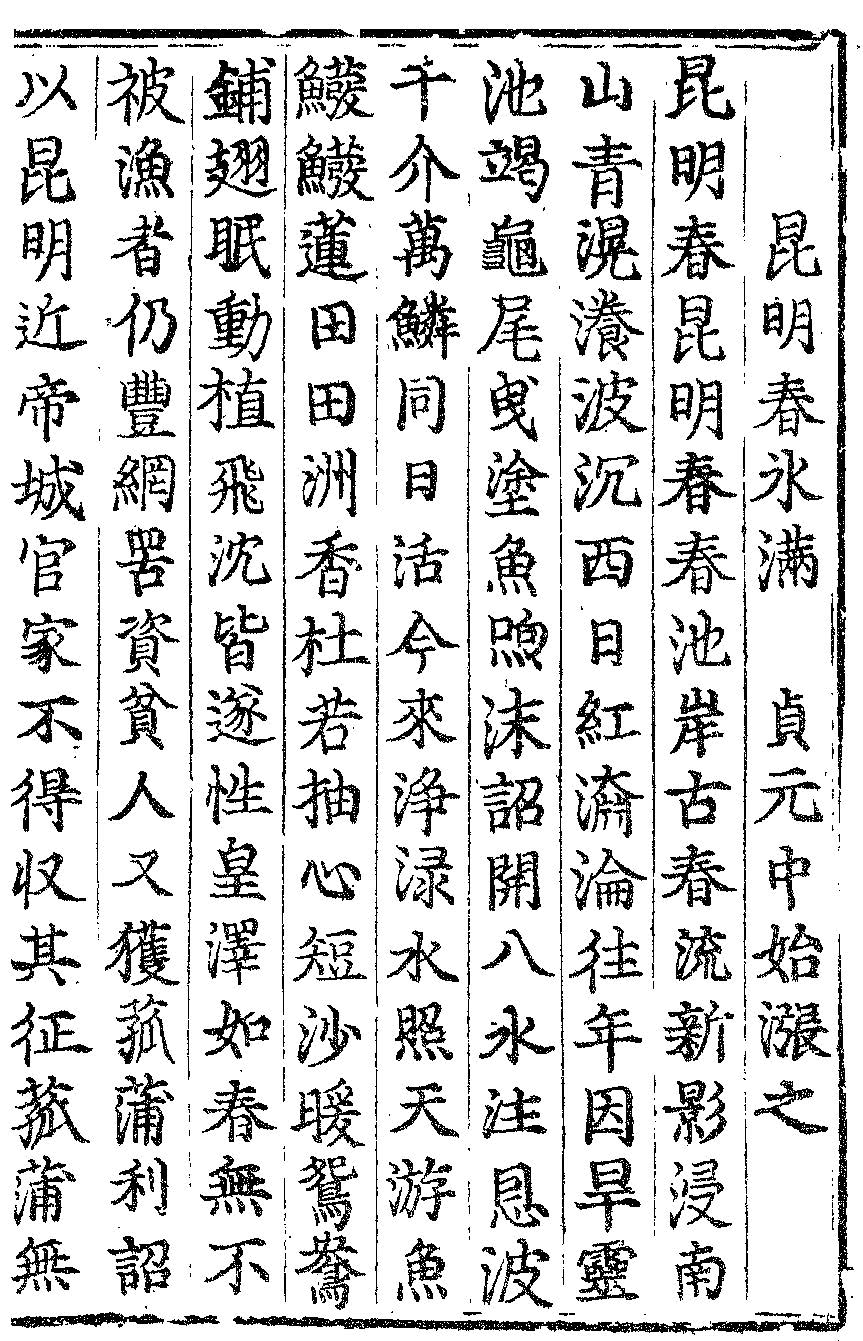 昆明春水満　貞元中始漲之
昆明春昆明春春池岸古春流新影浸南
山青滉瀁波沉西日紅奫淪往年因旱靈
池竭龜尾曳塗魚喣沫詔開八水注恩波
千介萬鱗同日活今來浄渌水照天游魚
鱍鱍蓮田田洲香杜若抽心短沙暖鴛鴦
鋪翅眠動植飛沈皆遂性皇澤如春無不
被漁者仍豐網罟資貧人又獲菰蒲利詔
以昆明近帝城官家不得収其征菰蒲無